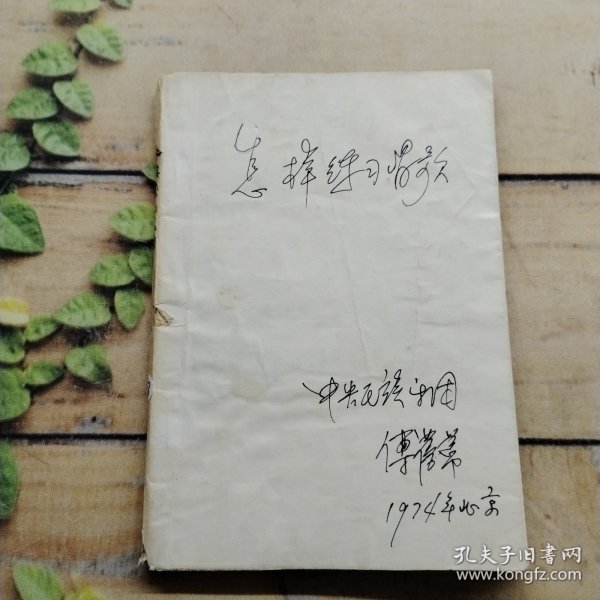 怎样练习唱歌
中央民族歌团
傅
1974年北京
孔夫子旧书网
www.kongfz.com